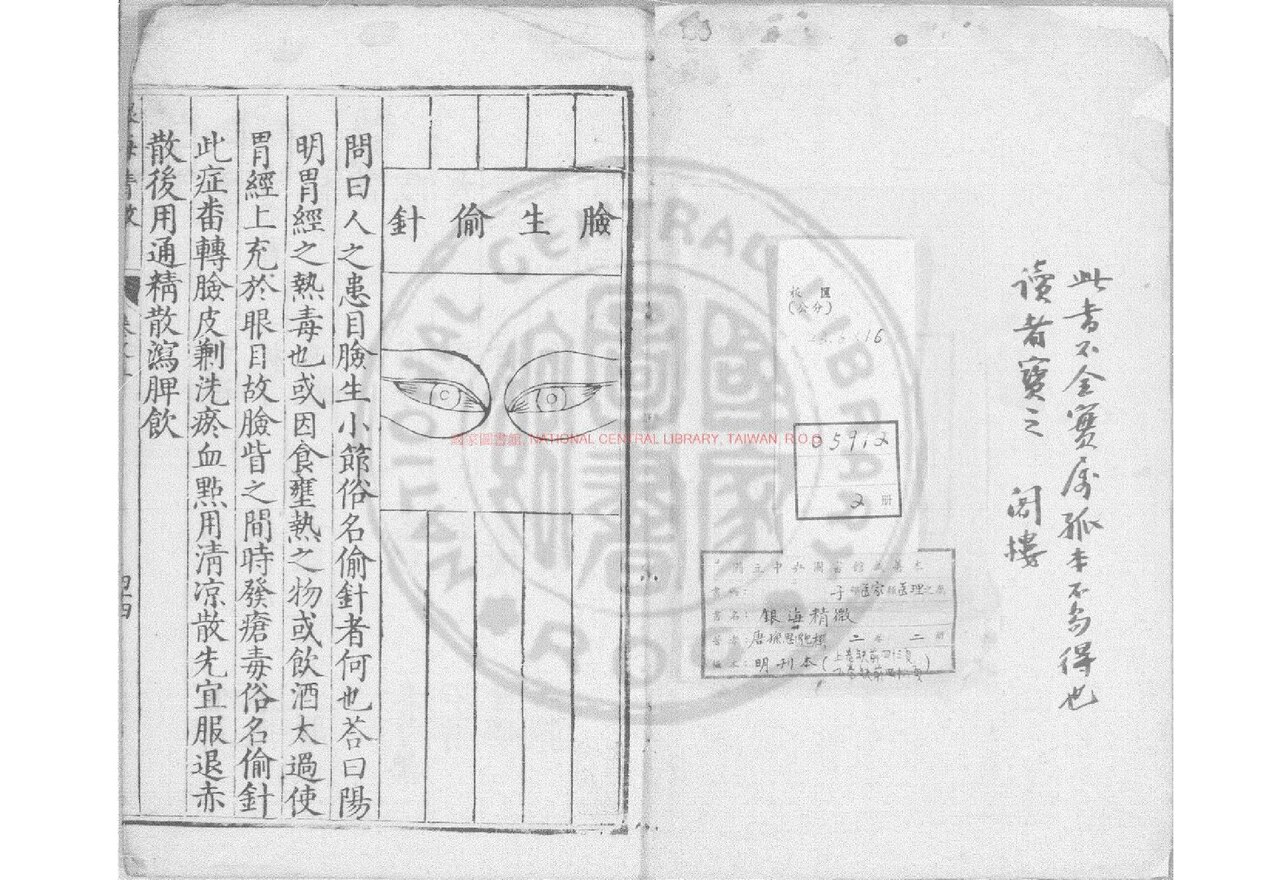 此書不全寶屬孤本不易得也
讀者寶之 閣樓
(公分)
16
05912
2 册
子 医家 医理之
銀海精微
唐 二 二 册
明刊本
臉生偷針
問曰人之患目臉生小節俗名偷針者何也荅曰陽
明胃經之熱毒也或因食壅熱之物或飲酒太過使
胃經上充於眼目故臉眥之間時發瘡毒俗名偷針
此症畨轉臉皮劆洗瘀血㸃用清凉散先宜服退赤
散後用通精散瀉脾飲
海精微
四四
國家圖書館, NATIONAL CENTRAL LIBRARY, TAIWAN, R.O.C
NATIONAL CENTRAL LIBRARY
ROC
國家圖書館